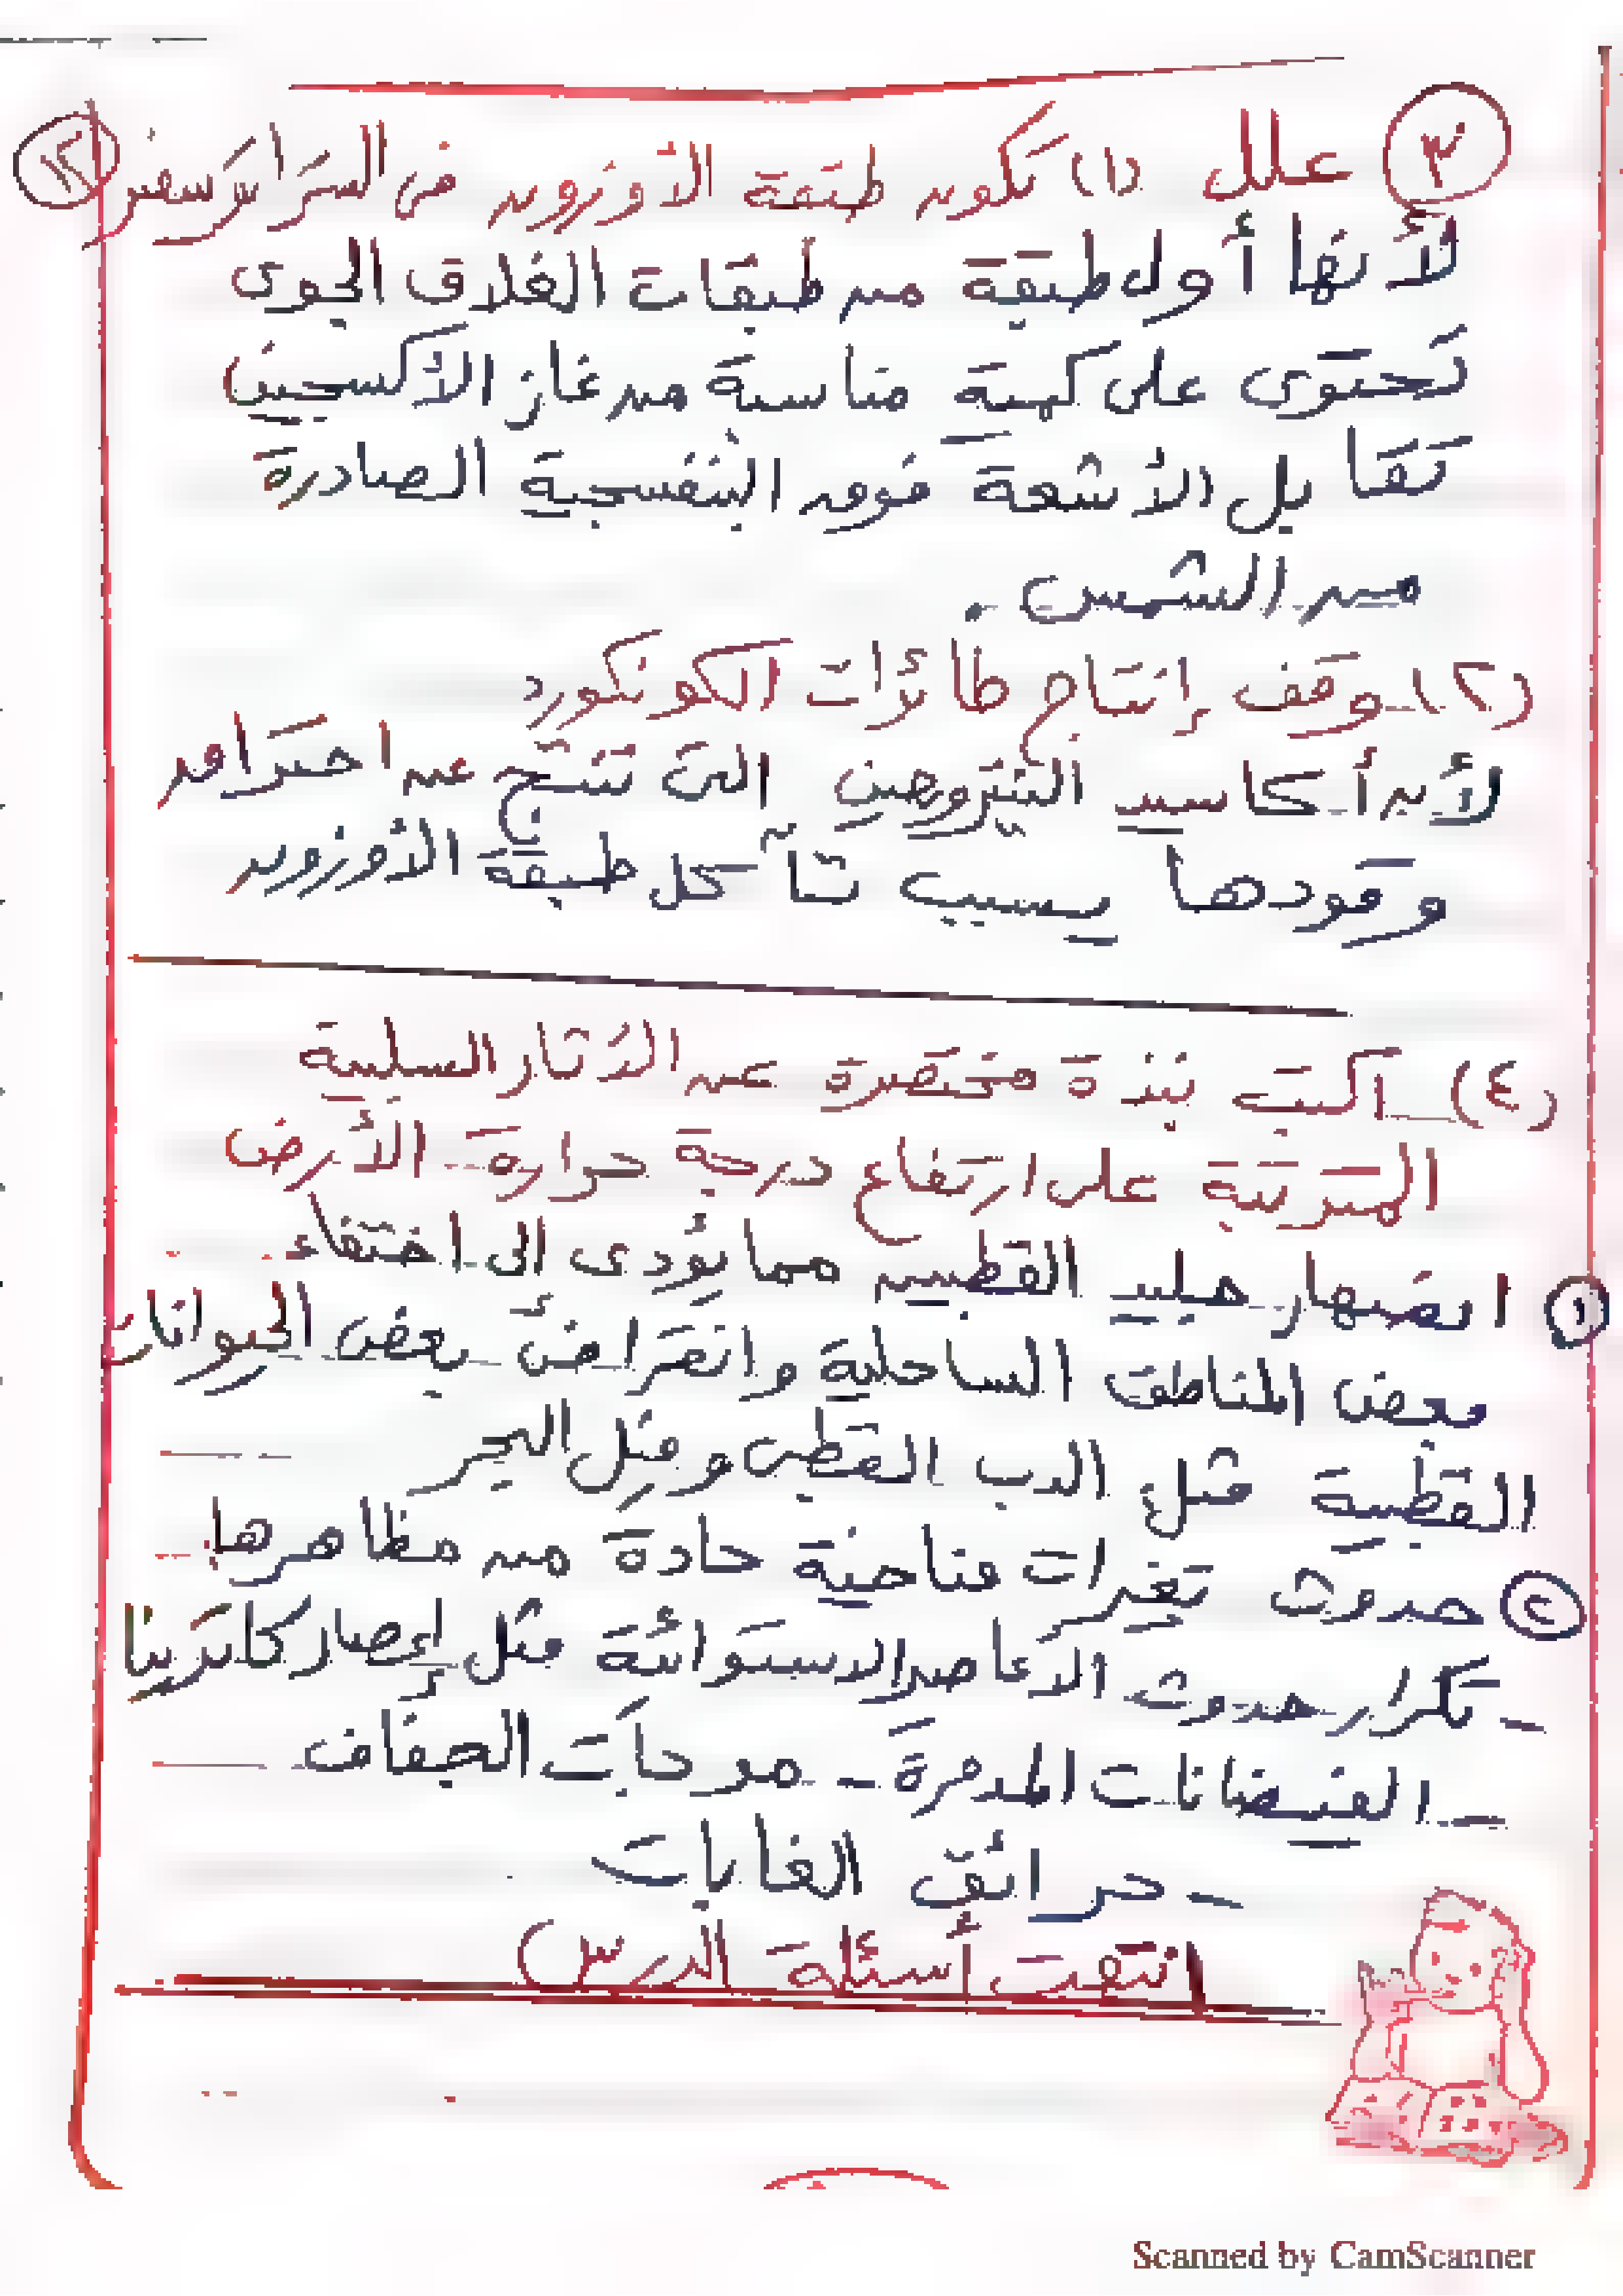 ٣ علل (١) تكون طبقة الأوزون فى الستراتوسفير ١٢
لأنها أول طبقة من طبقات الغلاف الجوى
تحتوى على كمية مناسبة من غاز الأكسجين
تقابل الأشعة فوق البنفسجية الصادرة
من الشمس .
(٢) - وقف إنتاج طائرات الكونكورد
لأن أكاسيد النيتروجين التى تنتج عن احتراق
وقودها يسبب تآكل طبقة الأوزون
(٤) - اكتب نبذة مختصرة عن الآثار السلبية
المترتبة على ارتفاع درجة حرارة الأرض
١ انصهار جليد القطبين مما يؤدى إلى اختفاء
بعض المناطق الساحلية وانقراض بعض الحيوانات
القطبية مثل الدب القطبى وفيل البحر
٢ حدوث تغيرات مناخية حادة من مظاهرها
- تكرار حدوث الاعاصير الاستوائية مثل إعصار كاترينا
- الفيضانات المدمرة - موجات الجفاف
- حرائق الغابات
انتهت أسئلة الدرس
Scanned by CamScanner